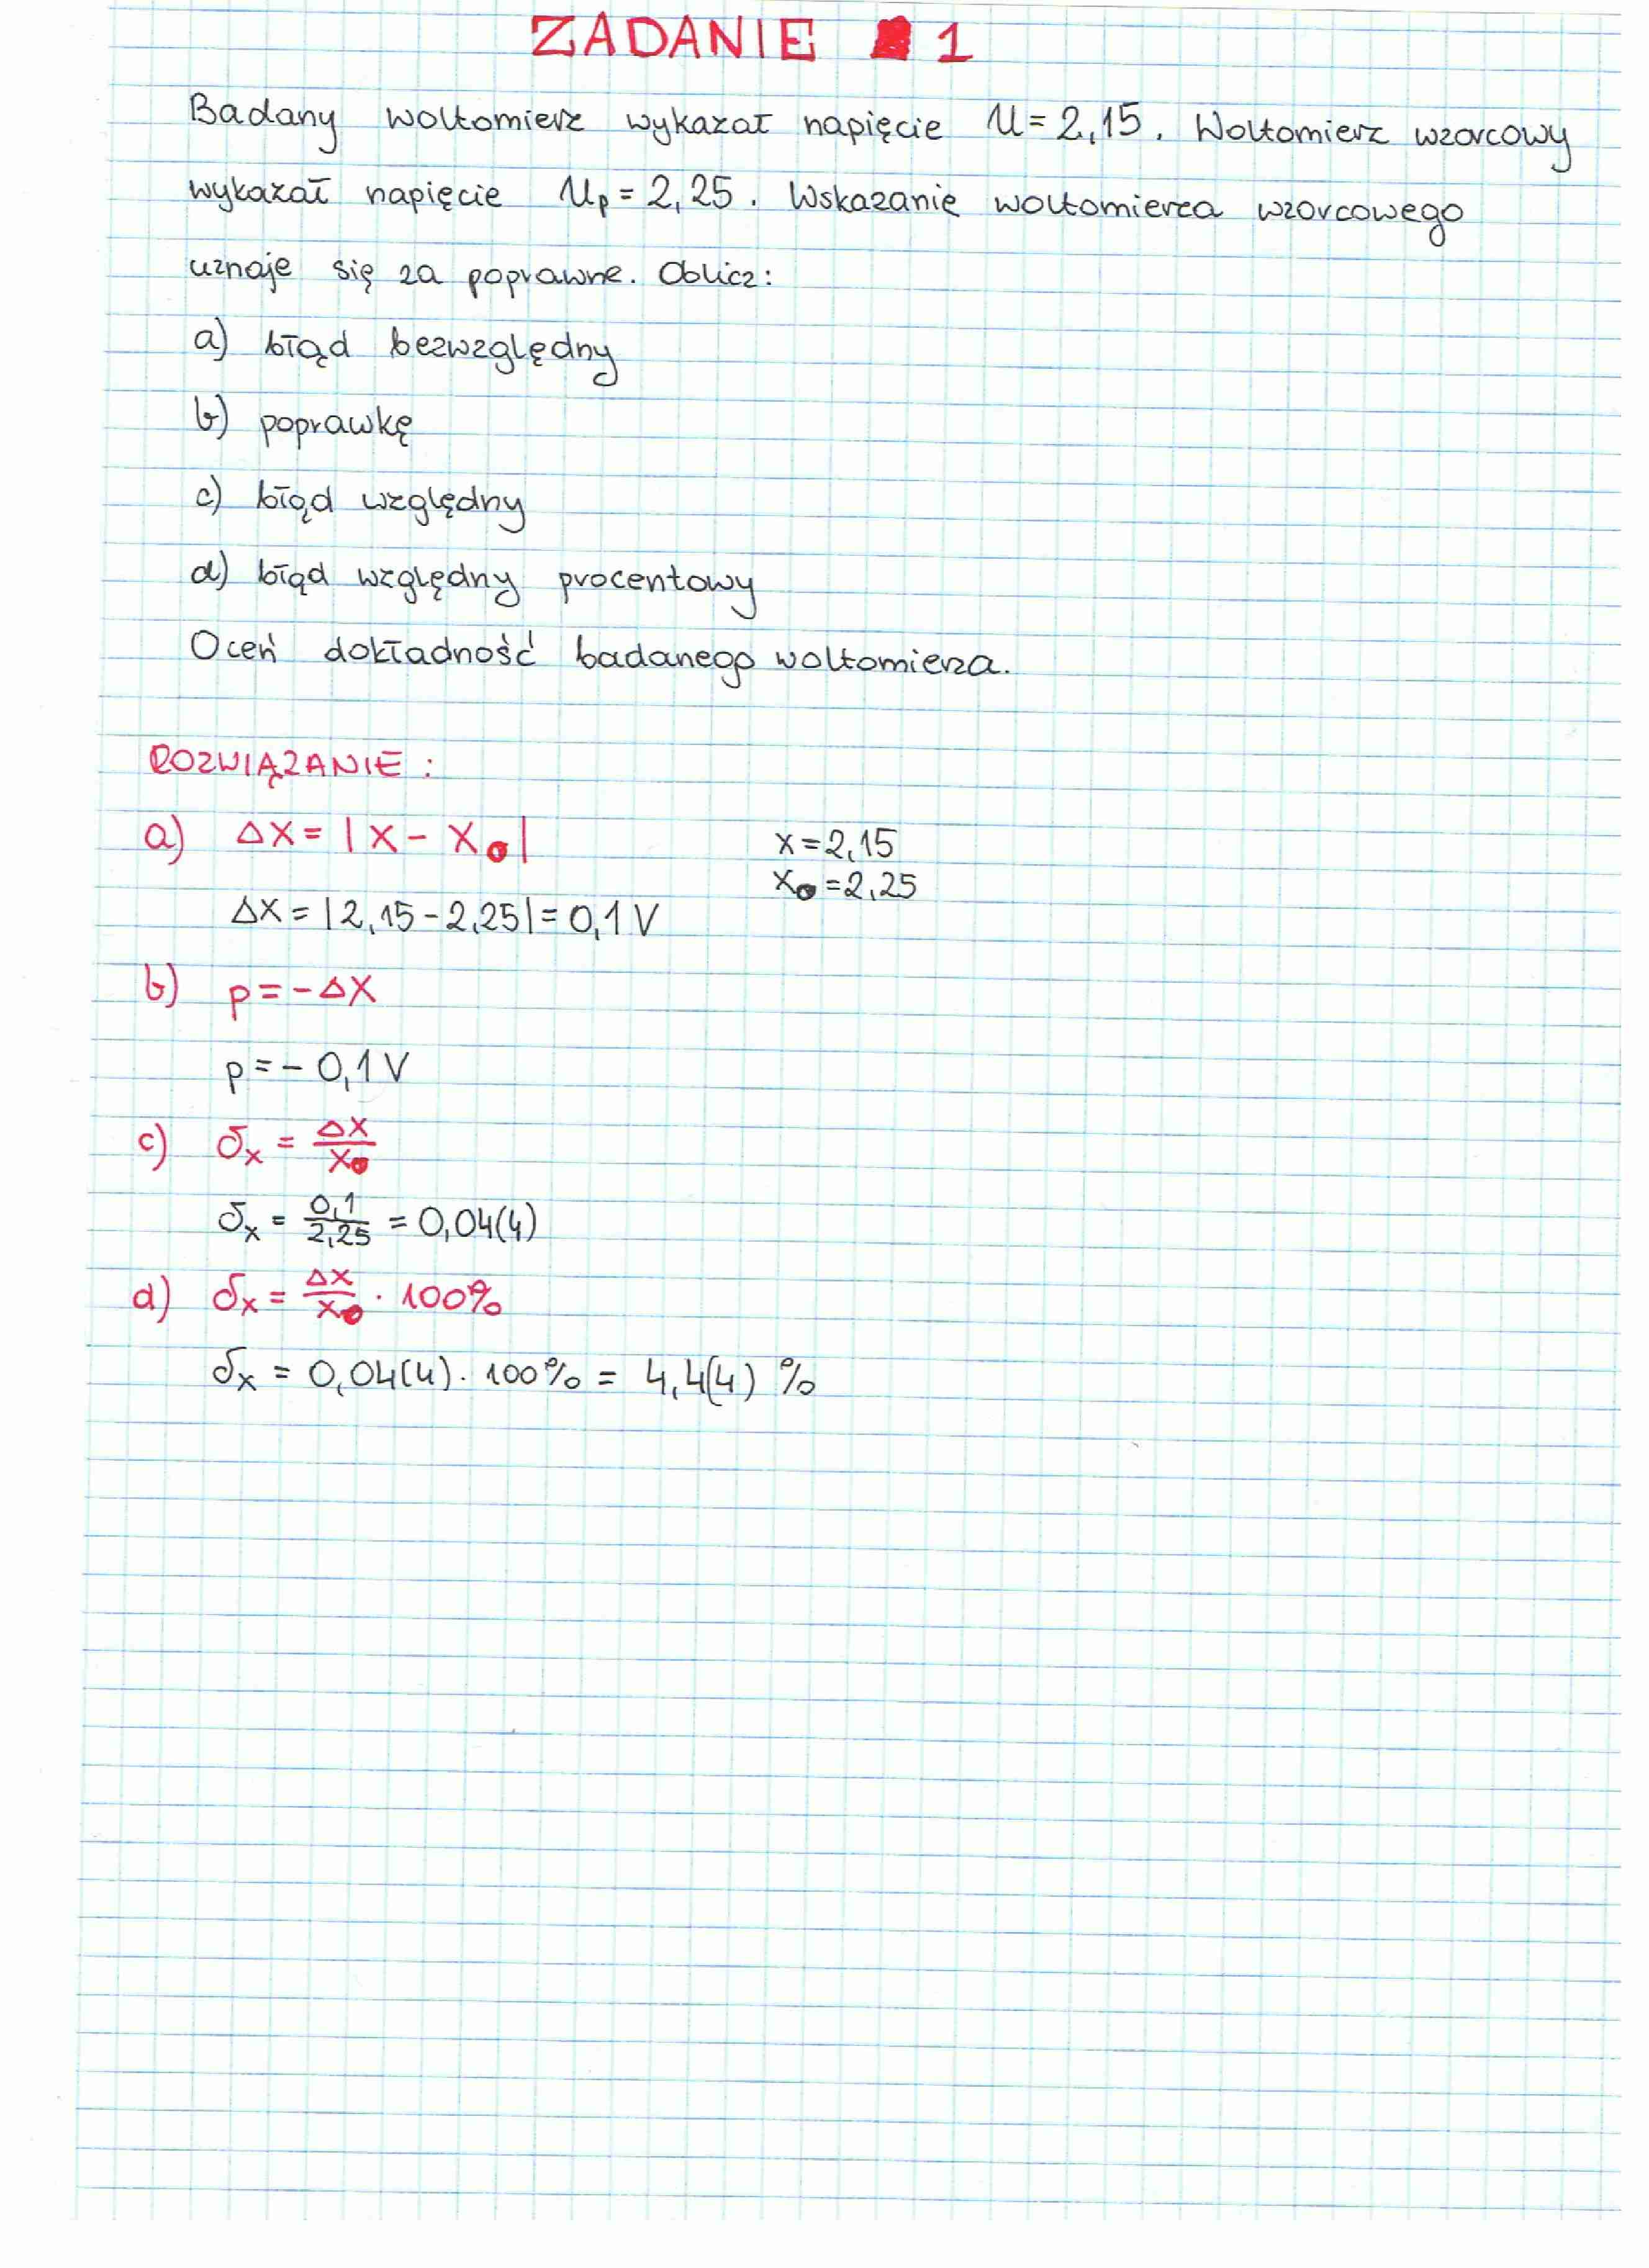 ZADANIE 1
Badany woltomierz wykazał napięcie U = 2,15. Woltomierz wzorcowy
wykazał napięcie Up = 2,25. Wskazanie woltomierza wzorcowego
uznaje się za poprawne. Oblicz:
a) błąd bezwzględny
b) poprawkę
c) błąd względny
d) błąd względny procentowy
Oceń dokładność badanego woltomierza.
ROZWIĄZANIE :
a) Δx = |x - x₀| x = 2,15
x₀ = 2,25
Δx = |2,15 - 2,25| = 0,1 V
b) p = - Δx
p = - 0,1 V
c) δx = Δx/x₀
δx = 0,1/2,25 = 0,04(4)
d) δx = Δx/x₀ · 100%
δx = 0,04(4) · 100% = 4,4(4) %